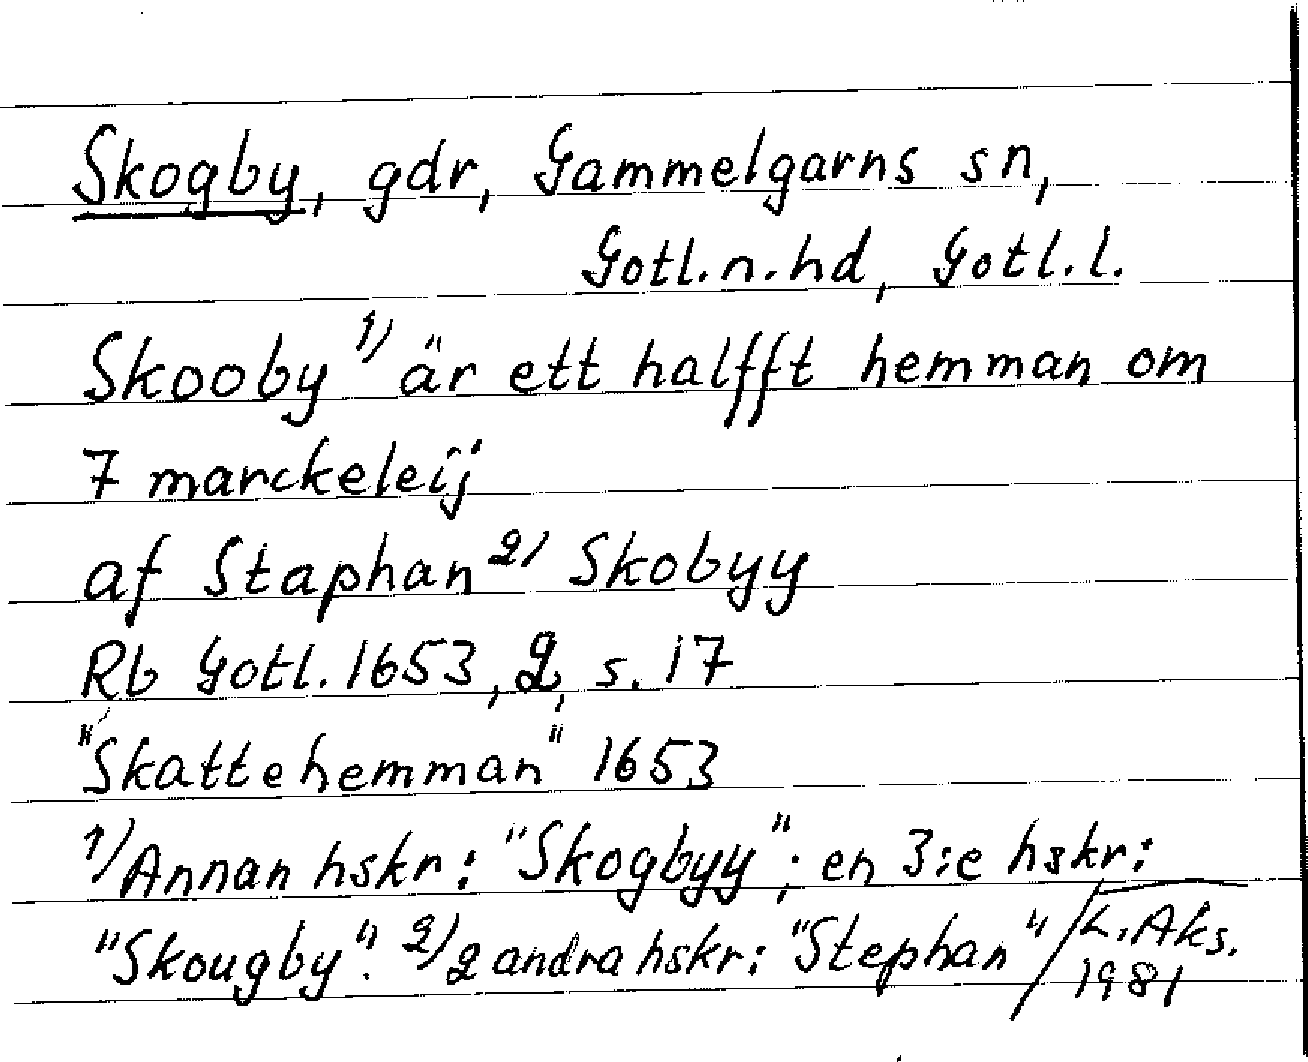 Skogby, gdr, Gammelgarns sn,
Gotl.n.hd, Gotl.l.
Skooby 1) är ett halfft hemman om
7 marckeleij
af Staphan 2) Skobyy
Rb Gotl. 1653, 2, s. 17
"Skattehemman" 1653
1) Annan hskr: "Skogbyy"; en 3:e hskr:
"Skougby". 2) 2 andra hskr: "Stephan"
L. Aks.
1981